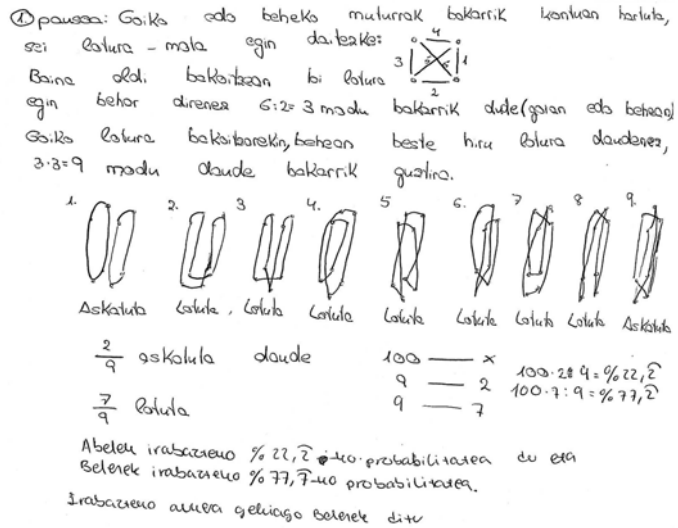 ① pausoa: Goiko edo beheko muturrak bakarrik kontuan hartuta,
sei lotura-mota egin daitezke:
4
3 1
2
Baina aldi bakoitzean bi lotura
egin behar direnez 6:2=3 modu bakarrik dude (goian edo behean)
Goiko lotura bakoitzarekin, behean beste hiru lotura daudenez,
3·3=9 modu daude bakarrik guztira.
1. 2. 3 4. 5 6. 7 8 9.
Askatuta Lotuta, Lotuta Lotuta Lotuta Lotuta Lotuta Lotuta Askatuta
2/9 askatuta daude
7/9 lotuta
100 — x
9 — 2
9 — 7
100·2:9=%22,2̂
100·7:9=%77,2̂
Abelek irabazteko %22,2̂-ko probabilitatea du eta
Belenek irabazteko %77,7̂-ko probabilitatea.
Irabazteko aukera gehiago Belenek ditu